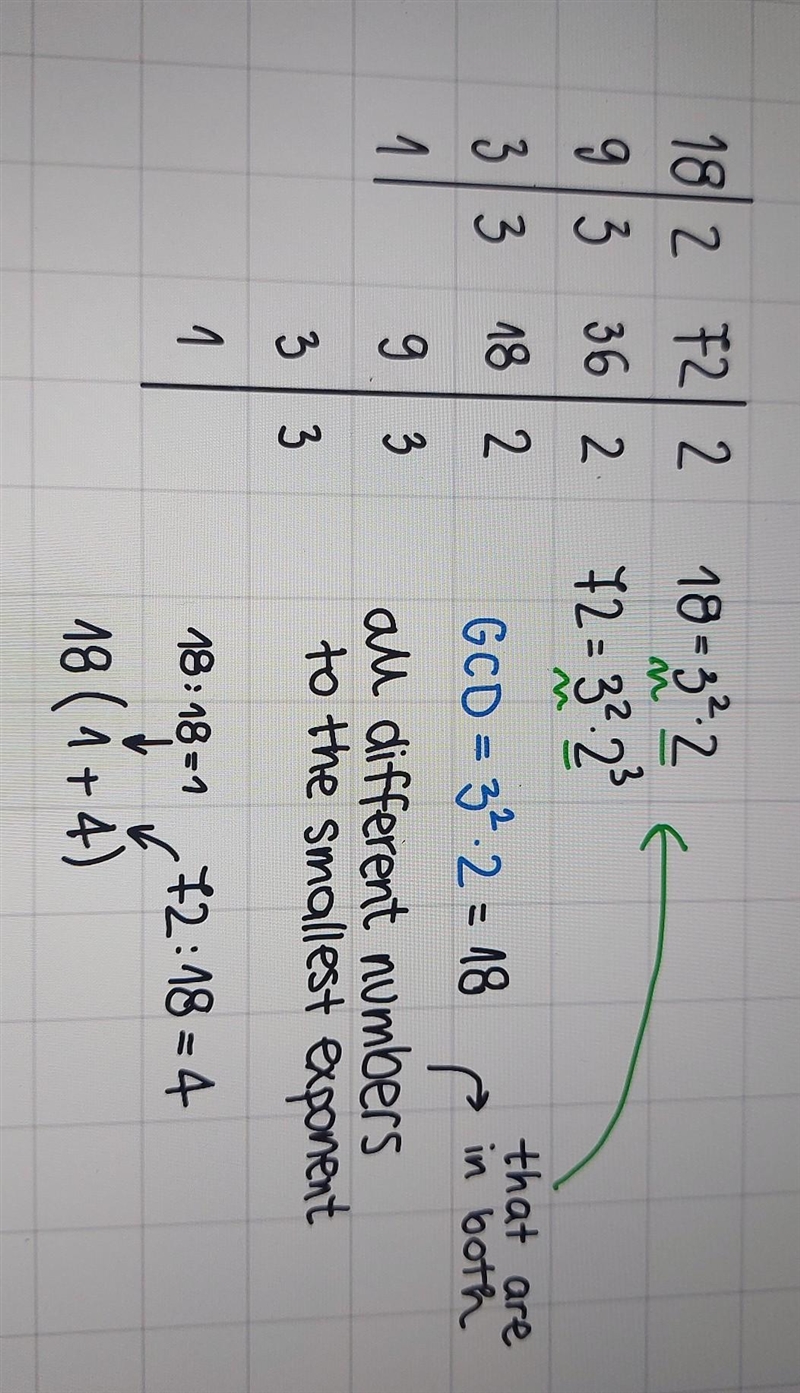 18 | 2
9 | 3
3 | 3
1 |
72 | 2
36 | 2
18 | 2
9 | 3
3 | 3
1 |
18 = 3² · 2
72 = 3² · 2³
GCD = 3² · 2 = 18
that are
in both
all different numbers
to the smallest exponent
18 : 18 = 1
72 : 18 = 4
18 ( 1 + 4 )